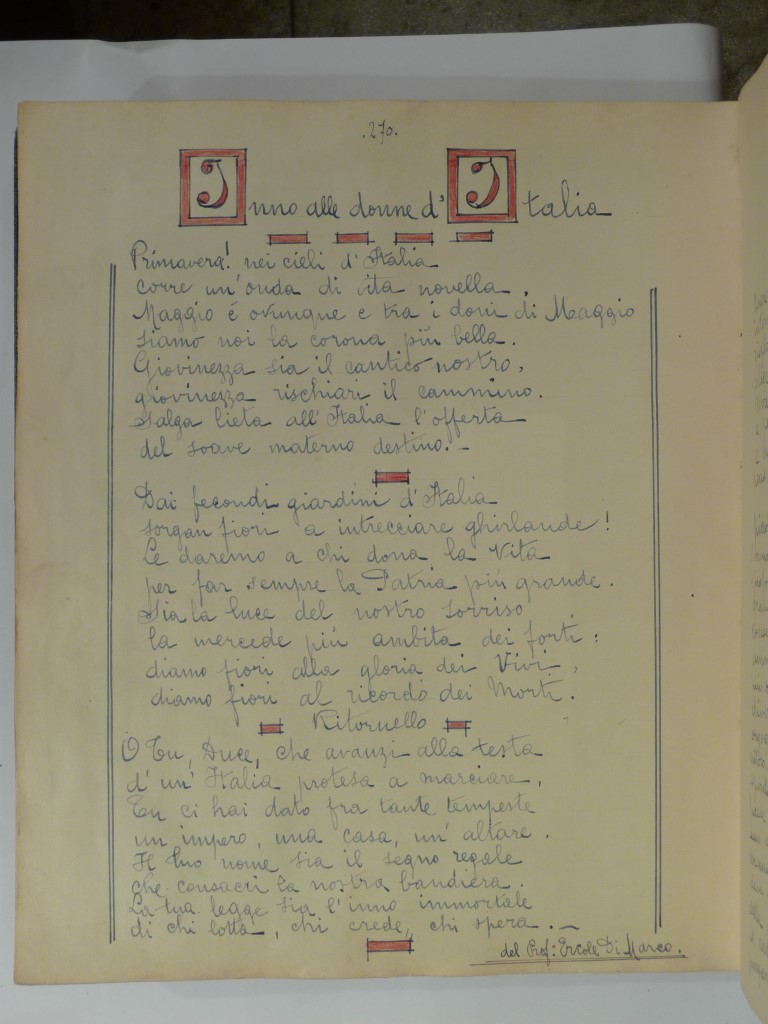 .270.
Inno alle donne d'Italia
Primavera! nei cieli d'Italia
corre un'onda di vita novella.
Maggio é ovunque e tra i doni di Maggio
siamo noi la corona più bella.
Giovinezza sia il cantico nostro,
giovinezza rischiari il cammino.
Salga lieta all'Italia l'offerta
del soave materno destino._
Dai fecondi giardini d'Italia
sorgan fiori a intrecciare ghirlande!
Le daremo a chi dona la Vita
per far sempre la Patria più grande.
Sia la luce del nostro sorriso
la mercede più ambita dei forti:
diamo fiori alla gloria dei Vivi,
diamo fiori al ricordo dei Morti.
Ritornello
O Tu, Duce, che avanzi alla testa
d'un'Italia protesa a marciare,
Tu ci hai dato fra tante tempeste
un impero, una casa, un'altare.
Il tuo nome sia il segno regale
che consacri la nostra bandiera.
La tua legge sia l'inno immortale
di chi lotta, chi crede, chi spera._
del Prof: Ercole Di Marco.